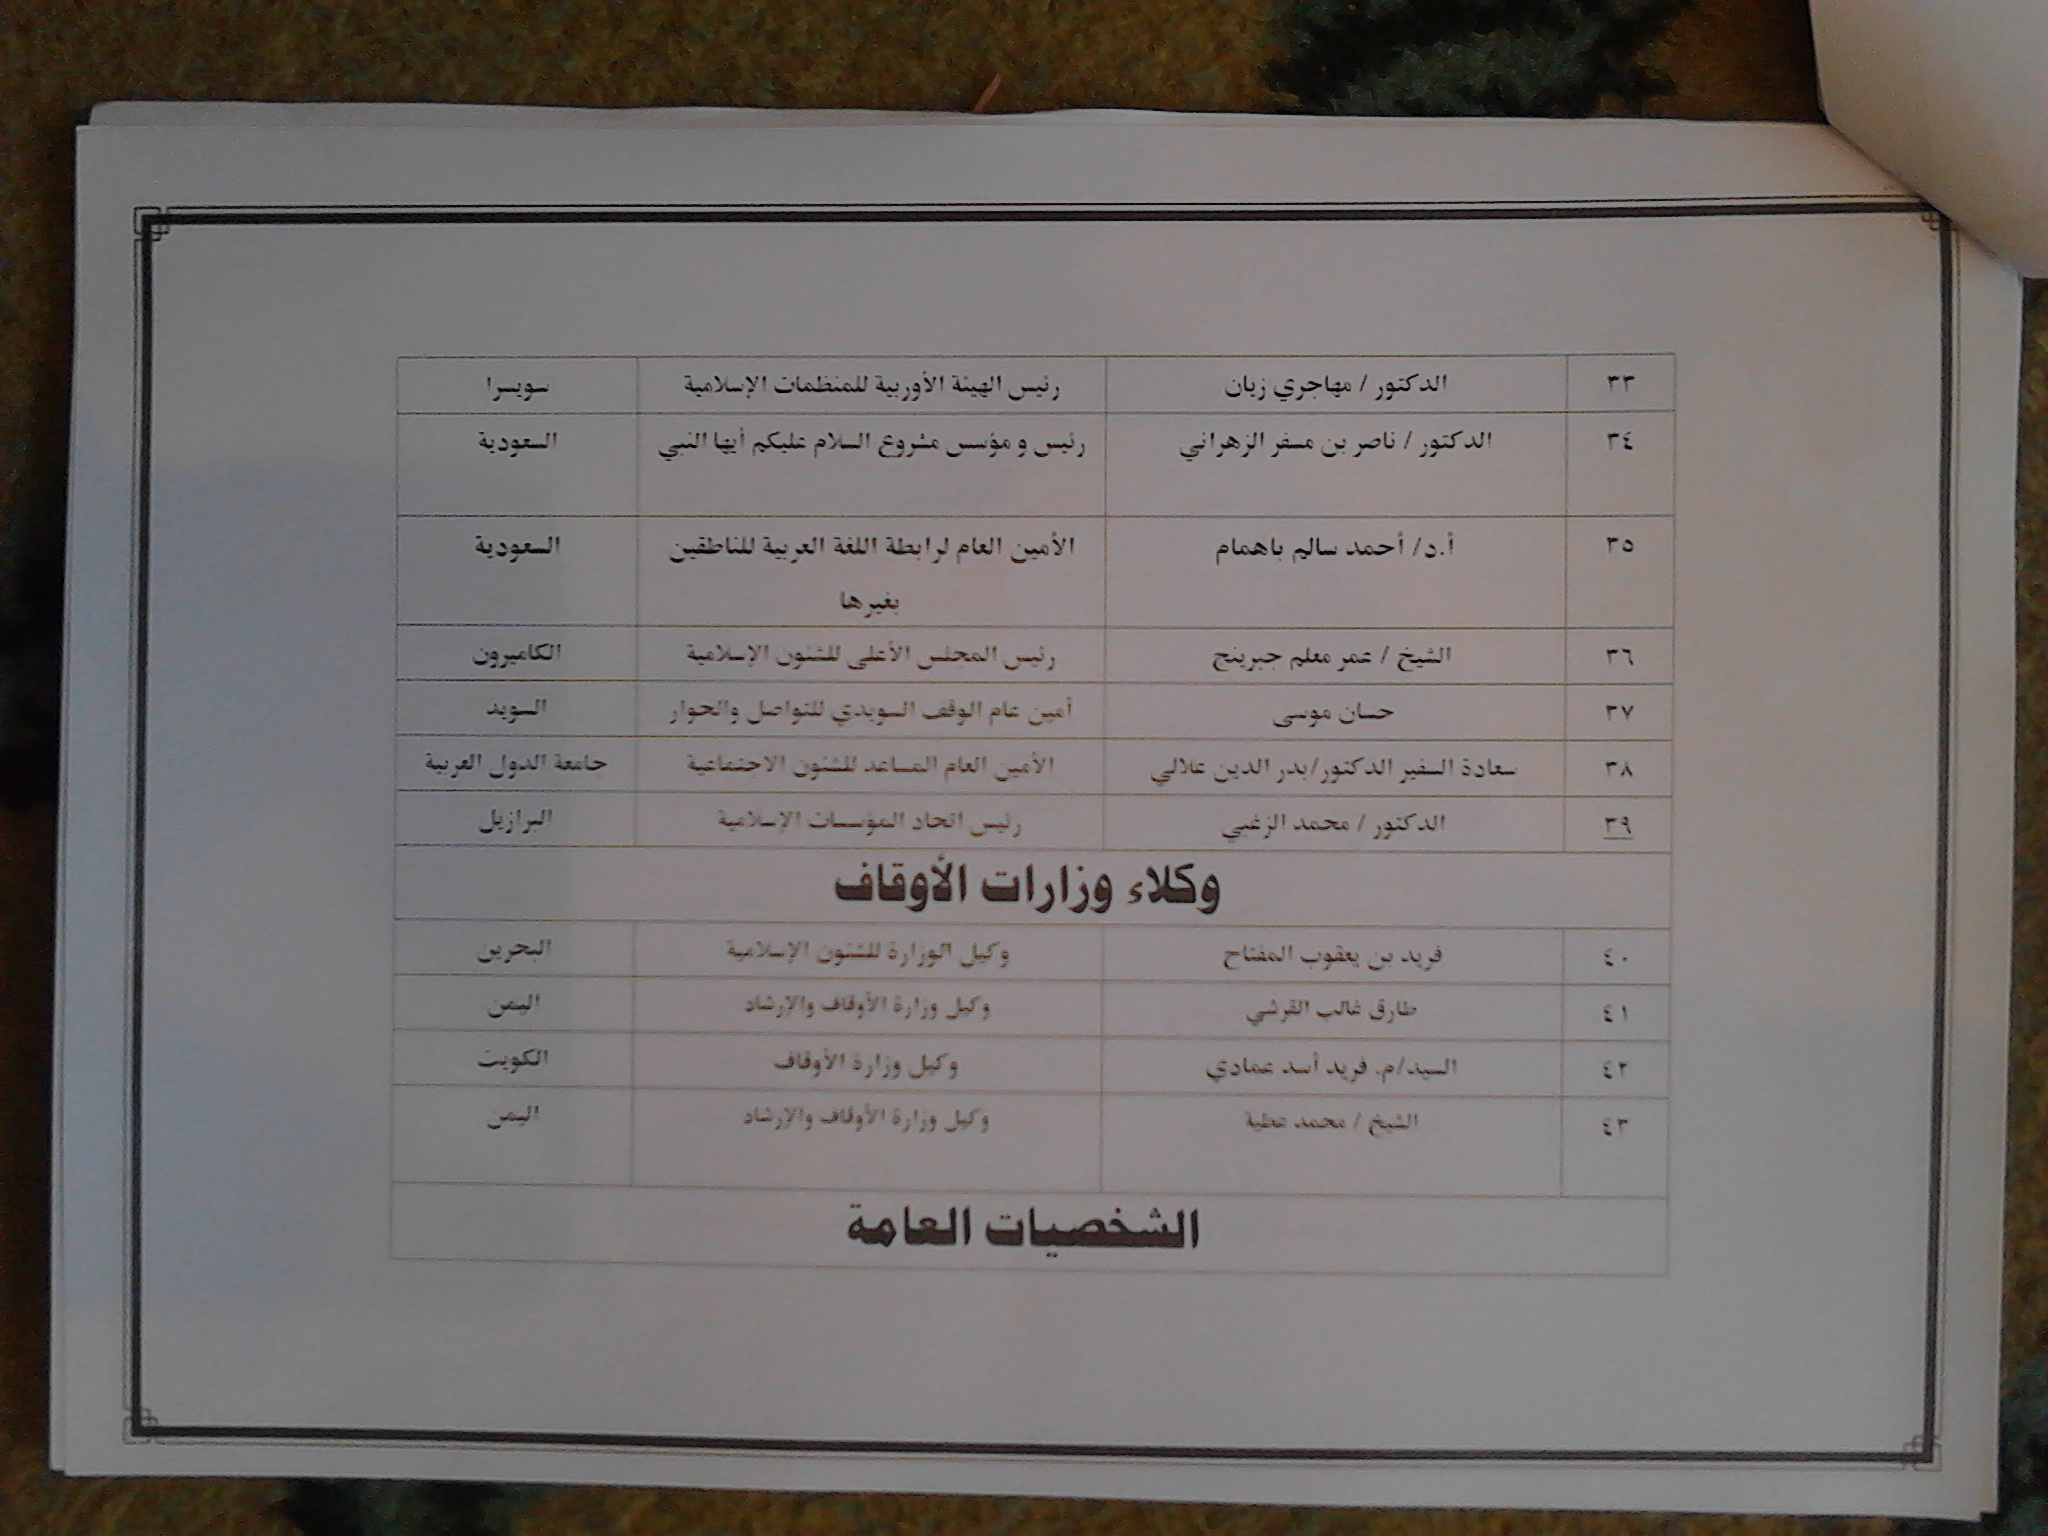 ٣٣ الدكتور / مهاجري زيان رئيس الهيئة الأوربية للمنظمات الإسلامية سويسرا
٣٤ الدكتور / ناصر بن مسفر الزهراني رئيس و مؤسس مشروع السلام عليكم أيها النبي السعودية
٣٥ أ.د/ أحمد سالم باهمام الأمين العام لرابطة اللغة العربية للناطقين السعودية
بغيرها
٣٦ الشيخ / عمر معلم جبرينج رئيس المجلس الأعلى للشئون الإسلامية الكاميرون
٣٧ حسان موسى أمين عام الوقف السويدي للتواصل والحوار السويد
٣٨ سعادة السفير الدكتور/بدر الدين علالي الأمين العام المساعد للشئون الاجتماعية جامعة الدول العربية
٣٩ الدكتور / محمد الزغبي رئيس اتحاد المؤسسات الإسلامية البرازيل
وكلاء وزارات الأوقاف
٤٠ فريد بن يعقوب المفتاح وكيل الوزارة للشئون الإسلامية البحرين
٤١ طارق غالب القرشي وكيل وزارة الأوقاف والإرشاد اليمن
٤٢ السيد/م. فريد أسد عمادي وكيل وزارة الأوقاف الكويت
٤٣ الشيخ / محمد عطية وكيل وزارة الأوقاف والإرشاد اليمن
الشخصيات العامة